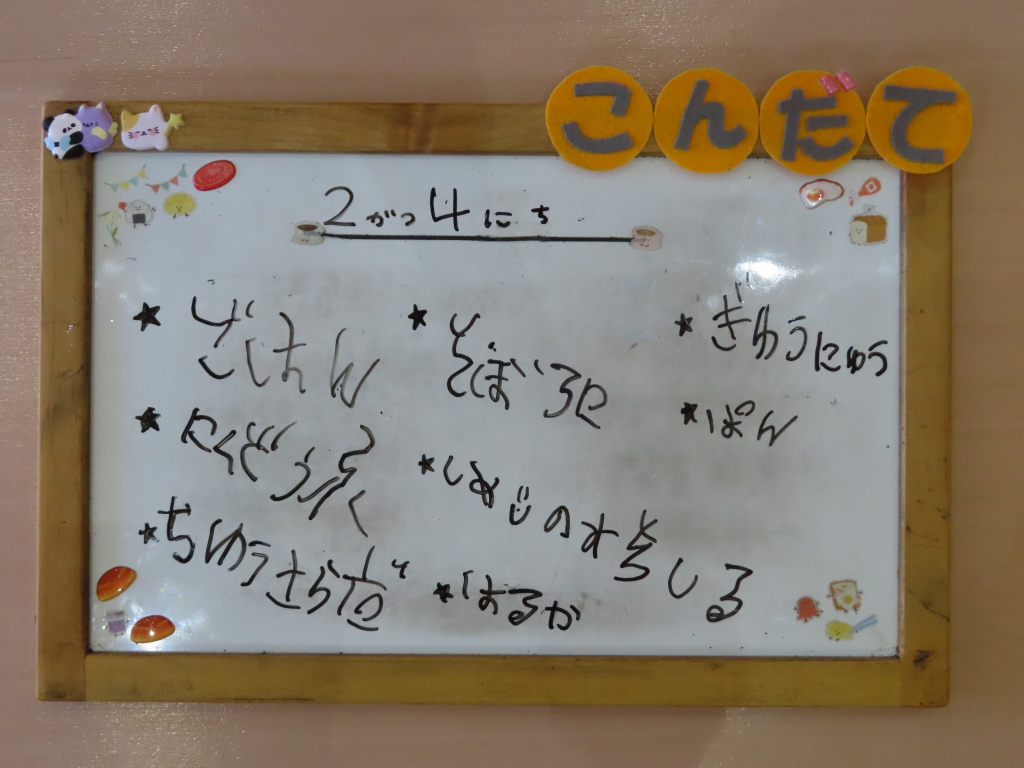 こんだて
2がつ4にち
★ごはん
★にくどうふ
★ちゅうさらだ
★そぼろに
★しめじのみそしる
★はるか
★ぎゅうにゅう
★ぱん